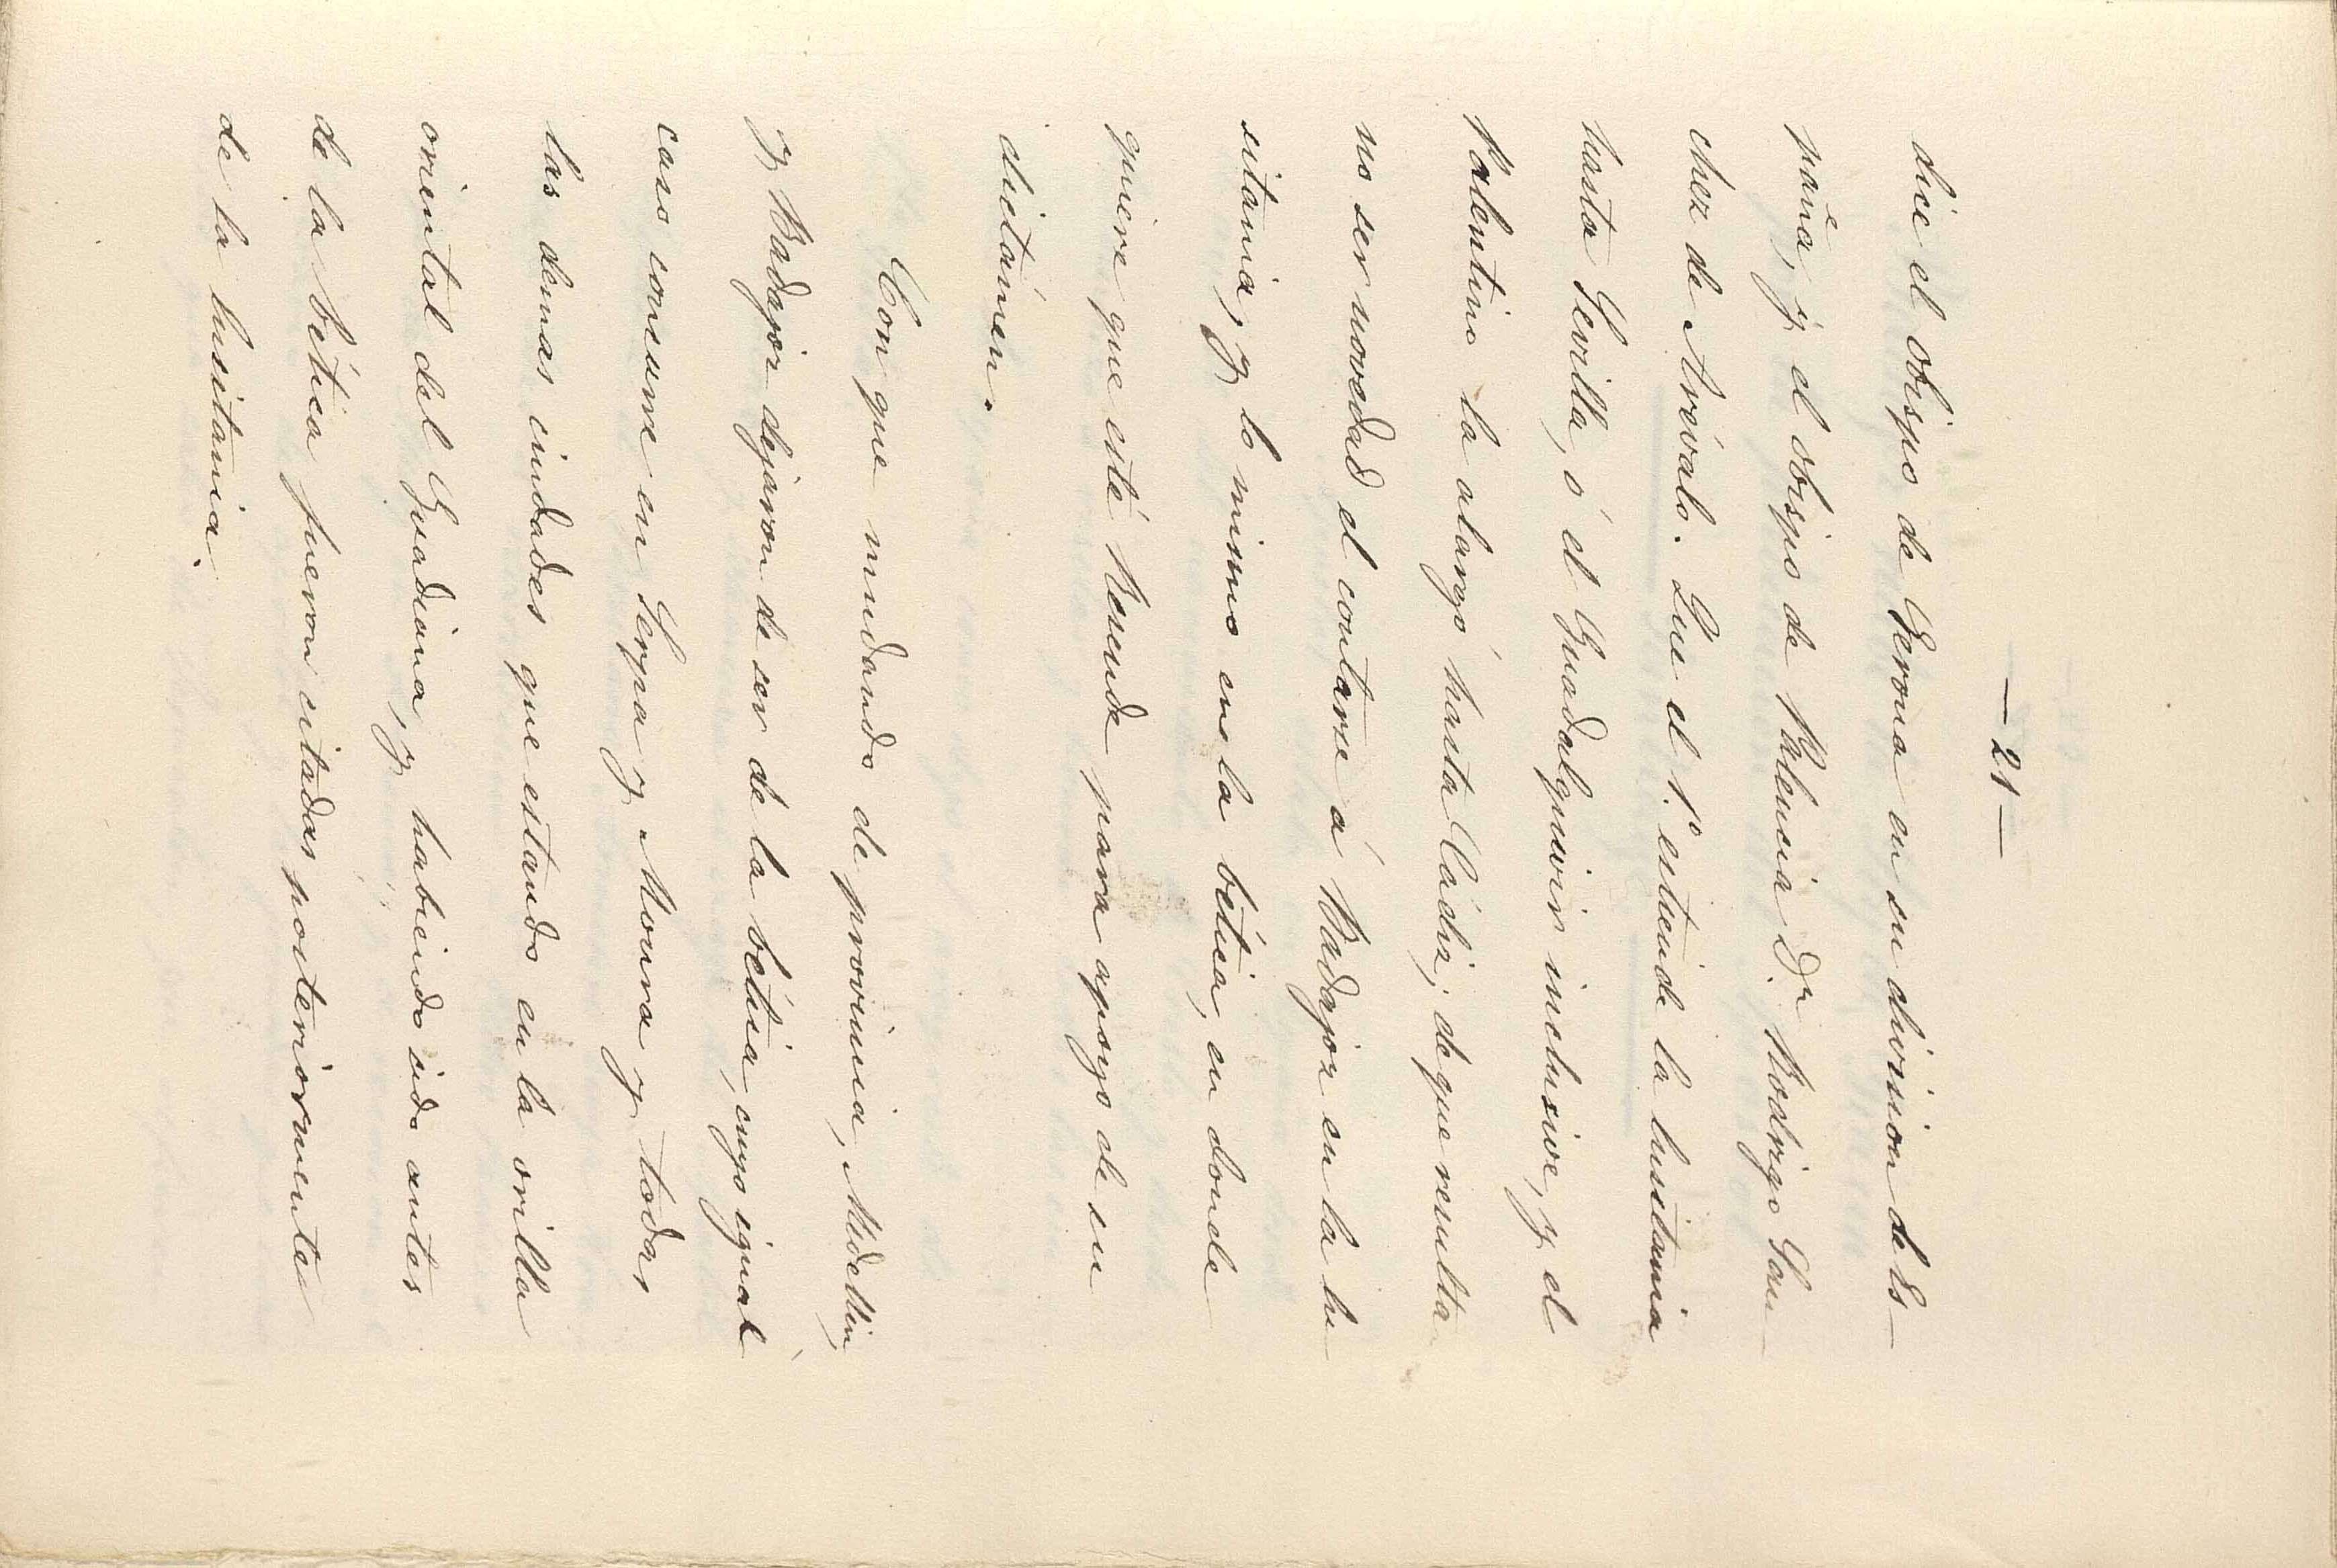 — 21 —
dice el obispo de Gerona en su division de Es-
paña, y el obispo de Palencia D.n Rodrigo San-
chez de Arévalo. Que el 1.º estiende la lusitania
hasta Sevilla, ó el Guadalquivir inclusive, y el
Palentino la alargó hasta Cádiz; de que resulta
no ser novedad el contarse á Badajoz en la lu-
sitania, y lo mismo en la bética, en donde
quiere que esté Resende para apoyo de su
dictámen.
Con que mudando de provincia, Medellin,
y Badajoz dejaron de ser de la bética, cuyo igual
caso concurre en Serpa y Moura y todas
las demas ciudades que estando en la orilla
oriental del Guadiana, y habiendo sido antes
de la bética fueron citadas posteriormente
de la lusitania.